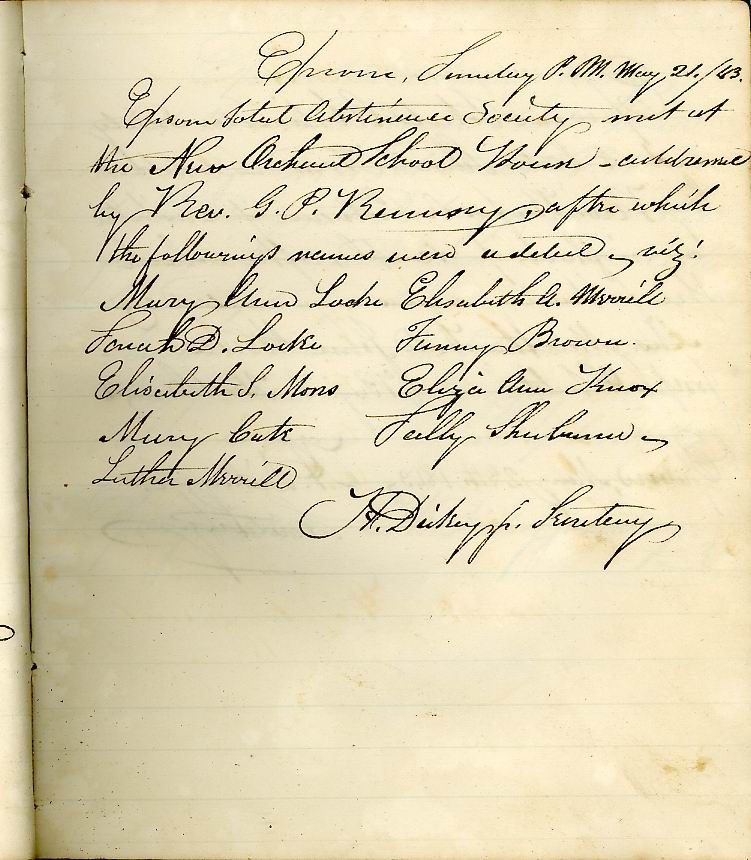 Epsom, Sunday P. M. May 21./43.
Epsom total Abstinence Society met at
the New Orchard School House - addressed
by Rev. G. P. Ramsey, after which
the followings names were added, viz:
Mary Ann Locke Elisabeth A. Merrill
Sarah D. Locke Fanny Brown.
Elisabeth S. Mons Eliza Ann Knox
Mary Cate Sally Sherburne
Luther Merrill
H. Dickey jr. Secretary